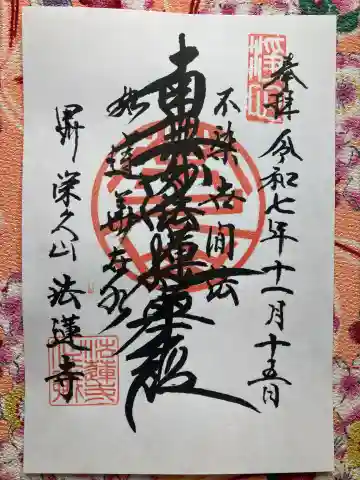 奉拝 令和七年十一月十五日
不染世間法
南無妙法蓮華経
如蓮華在水
栄久山 法蓮寺